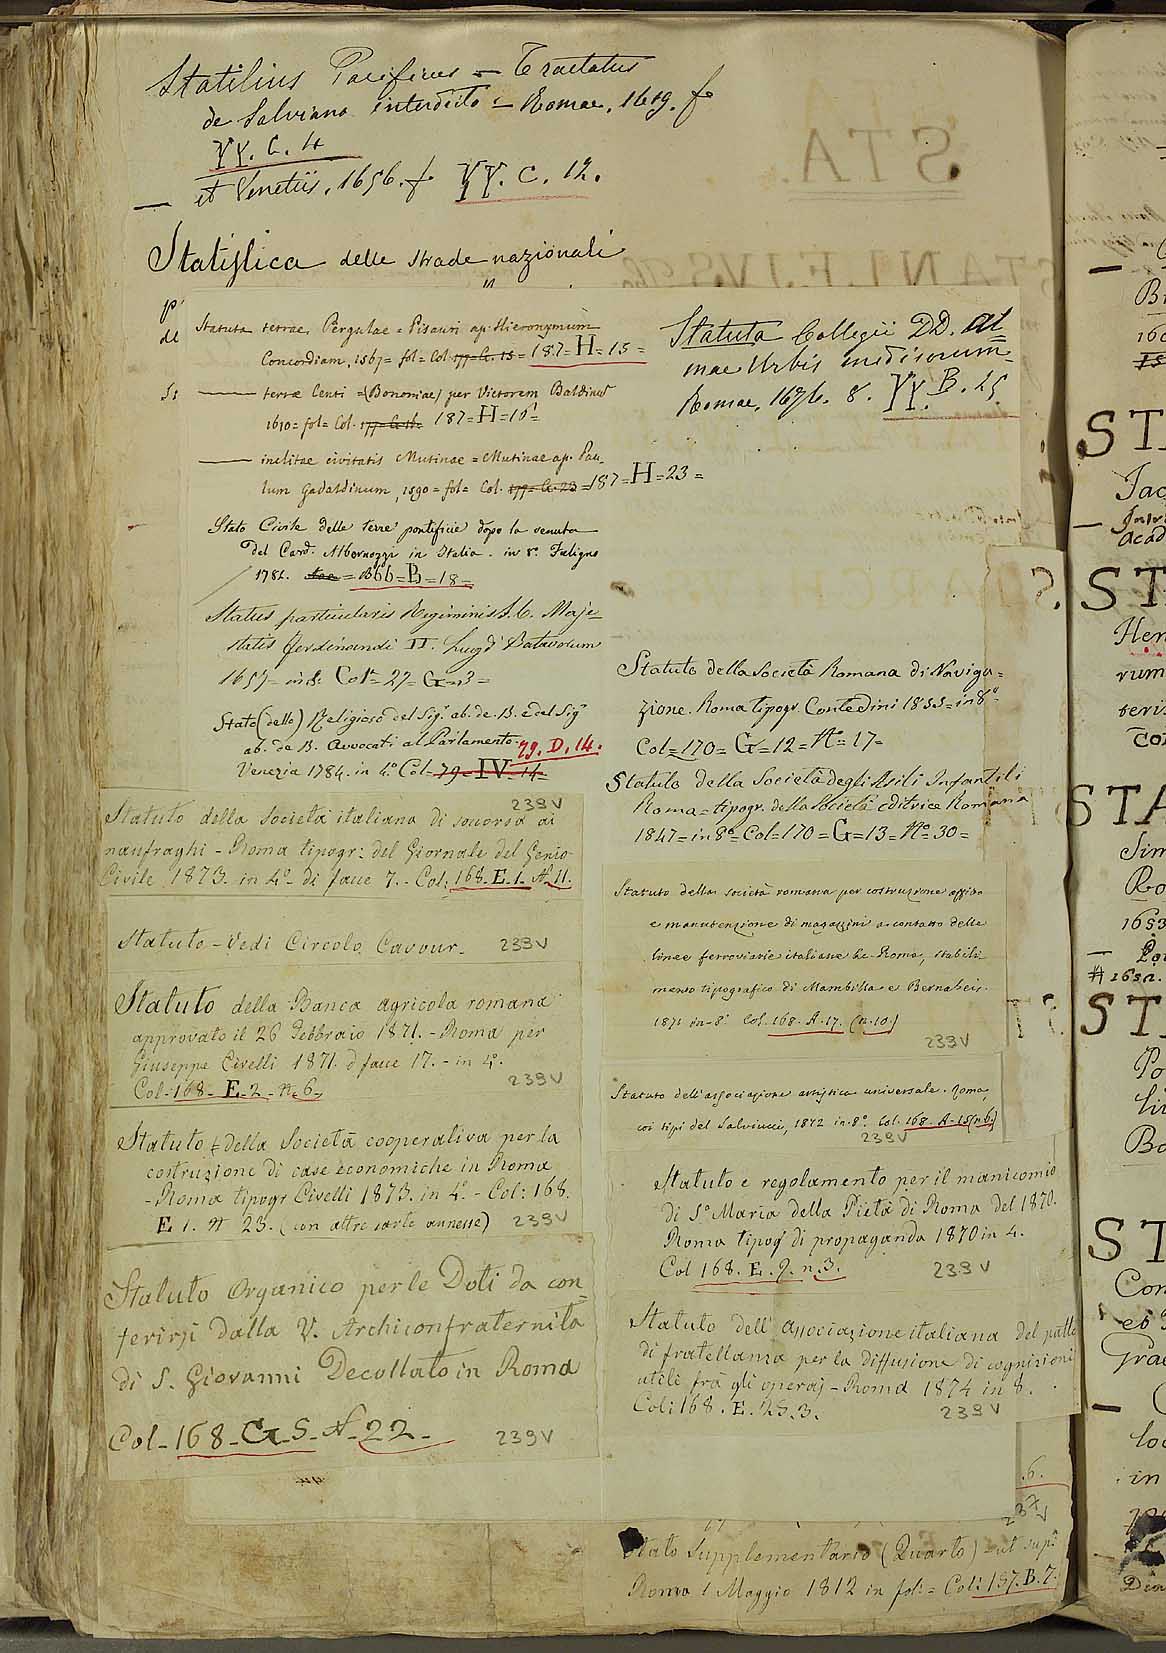 Statilius Pacificus = Tractatus
de Salviano interdicto = Romae, 1619. fo
YY. C. 4
— et Venetiis, 1656. fo YY. C. 12.
Statistica delle strade nazionali
Statuta terrae Pergulae = Pisauri ap. Hieronymum
Concordiam, 1567 = fol = Col. 177= C. 15 = 187=H=15=
—— terræ Centi = (Bononiae) per Victorem Baldinu
1610 = fol = Col. 177= C. 16= 187=H=16=
—— inclitae civitatis Mutinae = Mutinae ap. Pau_
lum Gadaldinum, 1590 = fol = Col. 177= C. 23 = 187=H=23=
Stato Civile delle terre pontificie dopo la venuta
del Card. Albornozzi in Italia. in 8° Fuligno
1782. B66=B=18=
Status particularis Regiminis S. C. Maje_
statis Ferdinandi II. Lugd Batavorum
1657= in 8. Col=27=G=3=
Stato (dello) Religioso del Sig. ab. de. B. e del Sig
ab. de B. Avvocati al Parlamento.
79. D. 14.
Venezia 1784. in 4° Col=79=IV=14=
239V
Statuto della Società italiana di soccorso ai
naufraghi - Roma tipogr: del Giornale del Genio
Civile 1873. in 4° di facce 7. - Col: 168. E. 1. N. 11.
Statuto - Vedi Circolo Cavour. 239V
Statuto della Banca agricola romana
approvato il 26 Febbraio 1871. - Roma per
Giuseppe Civelli 1871 di facce 17. - in 4°.
Col: 168. E. 2. N. 6. 239V
Statuto della Società cooperativa per la
costruzione di case economiche in Roma
- Roma tipogr Civelli 1873. in 4°. - Col: 168.
E 1. N 23. (con altre carte annesse) 239V
Statuto Organico per le Doti da con_
ferirsi dalla V. Archiconfraternita
di S. Giovanni Decollato in Roma
Col_ 168_G_5_N_22_ 239V
Statuta Collegii DD. Al
mae Urbis medicorum_
Romae, 1676. 8. YY. B. 25.
Statuto della Società Romana di Naviga=
zione. Roma tipogr. Contedini 1855=in 8°
Col=170=G=12=N°=17=
Statuto della Società degli Asili Infantili
Roma = tipogr. della Società editrice Romana
1847=in 8°=Col=170=G=13=N°=30=
Statuto della società romana per costruzione affitto
e manutenzione di magazzini a contatto delle
linee ferroviarie italiane Roma, stabili_
mento tipografico di Mambilla e Bernabeis.
1871 in-8° Col. 168. A. 17. (n. 10)
239V
Statuto dell'associazione artistica universale. Roma,
coi tipi del Salviucci, 1872 in-8° Col. 168. A. 15 (n 6.)
239V
Statuto e regolamento per il manicomio
di S. Maria della Pietà di Roma del 1870.
Roma tipog di propaganda 1870 in 4.
Col 168. E. 2. n. 3. 239V
Statuto dell'associazione italiana del patto
di fratellanza per la diffusione di cognizioni
utili frà gli operaj - Roma 1874 in 8.
Col: 168. E. 25. 3. 239V
.6.
237V
Stato Supplementario (Quarto) = ut sup
Roma 1 Maggio 1812 in fol: = Col: 157. B. 7.